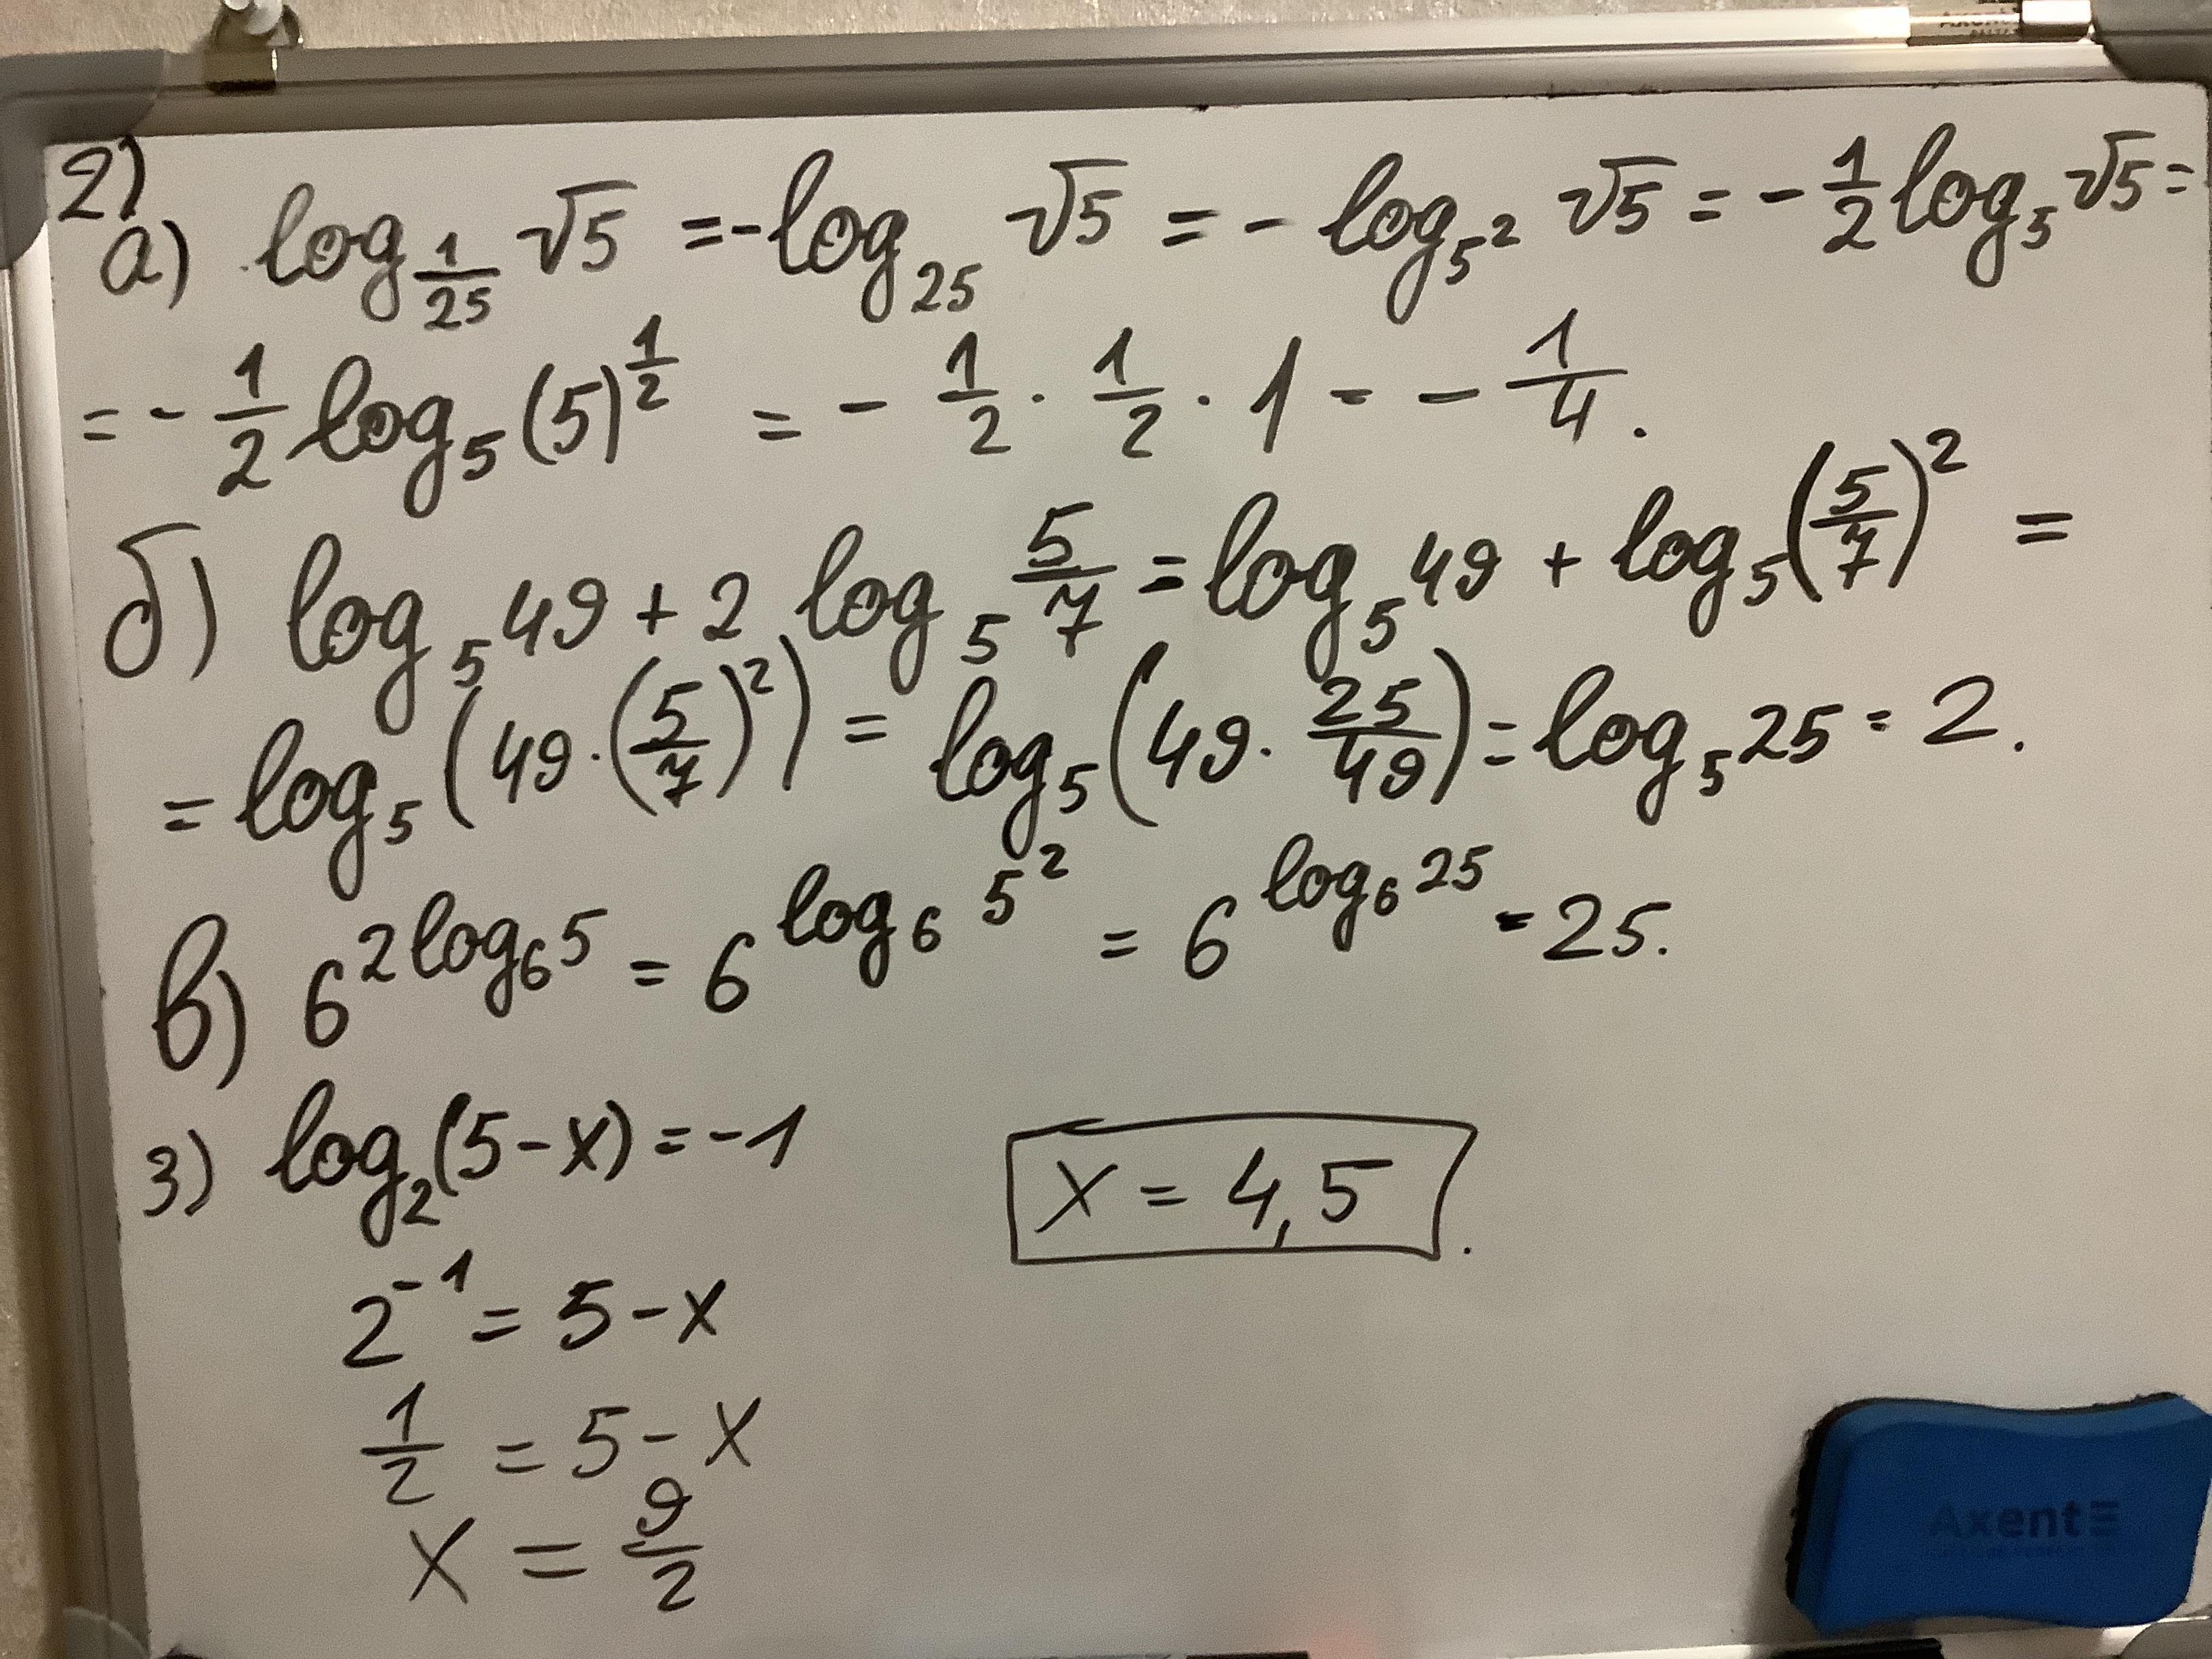 2)
а) log_{1/25} √5 = -log_{25} √5 = - log_{5²} √5 = - 1/2 log_5 √5 =
= - 1/2 log_5 (5)^{1/2} = - 1/2 · 1/2 · 1 = - 1/4 .
б) log_5 49 + 2 log_5 5/7 = log_5 49 + log_5 (5/7)² =
= log_5 (49 · (5/7)²) = log_5 (49 · 25/49) = log_5 25 = 2 .
в) 6^{2 log_6 5} = 6^{log_6 5²} = 6^{log_6 25} = 25 .
3) log_2 (5 - x) = -1
x = 4,5 .
2^{-1} = 5 - x
1/2 = 5 - x
x = 9/2
Axent